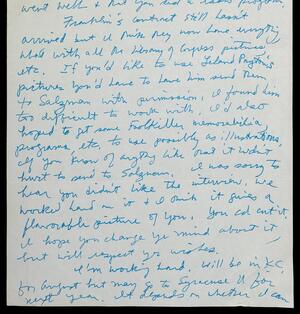 went well & that you had a good program.
Franklin's contract still hasn't
arrived but I think they now have everything
what with all the Library of Congress pictures
etc. If you'd like to use Leland Payton's
pictures you'd have to have him send them
to Salzman with permission. I found him
too difficult to work with. I'd also
hoped to get some Folkiller memorabilia
programs, etc. to use possibly as illustrations.
If you know of anything like that it wouldn't
hurt to send to Salzman. I was sorry to
hear you didn't like the interview. We
worked hard on it & I think it gives a
flavorable picture of you. You cd cut it.
I hope you change yr mind about it,
but will respect yr wishes.
I'm working hard. Will be in K.C.
for August but may go to Syracuse U for
next year. It depends on whether I can